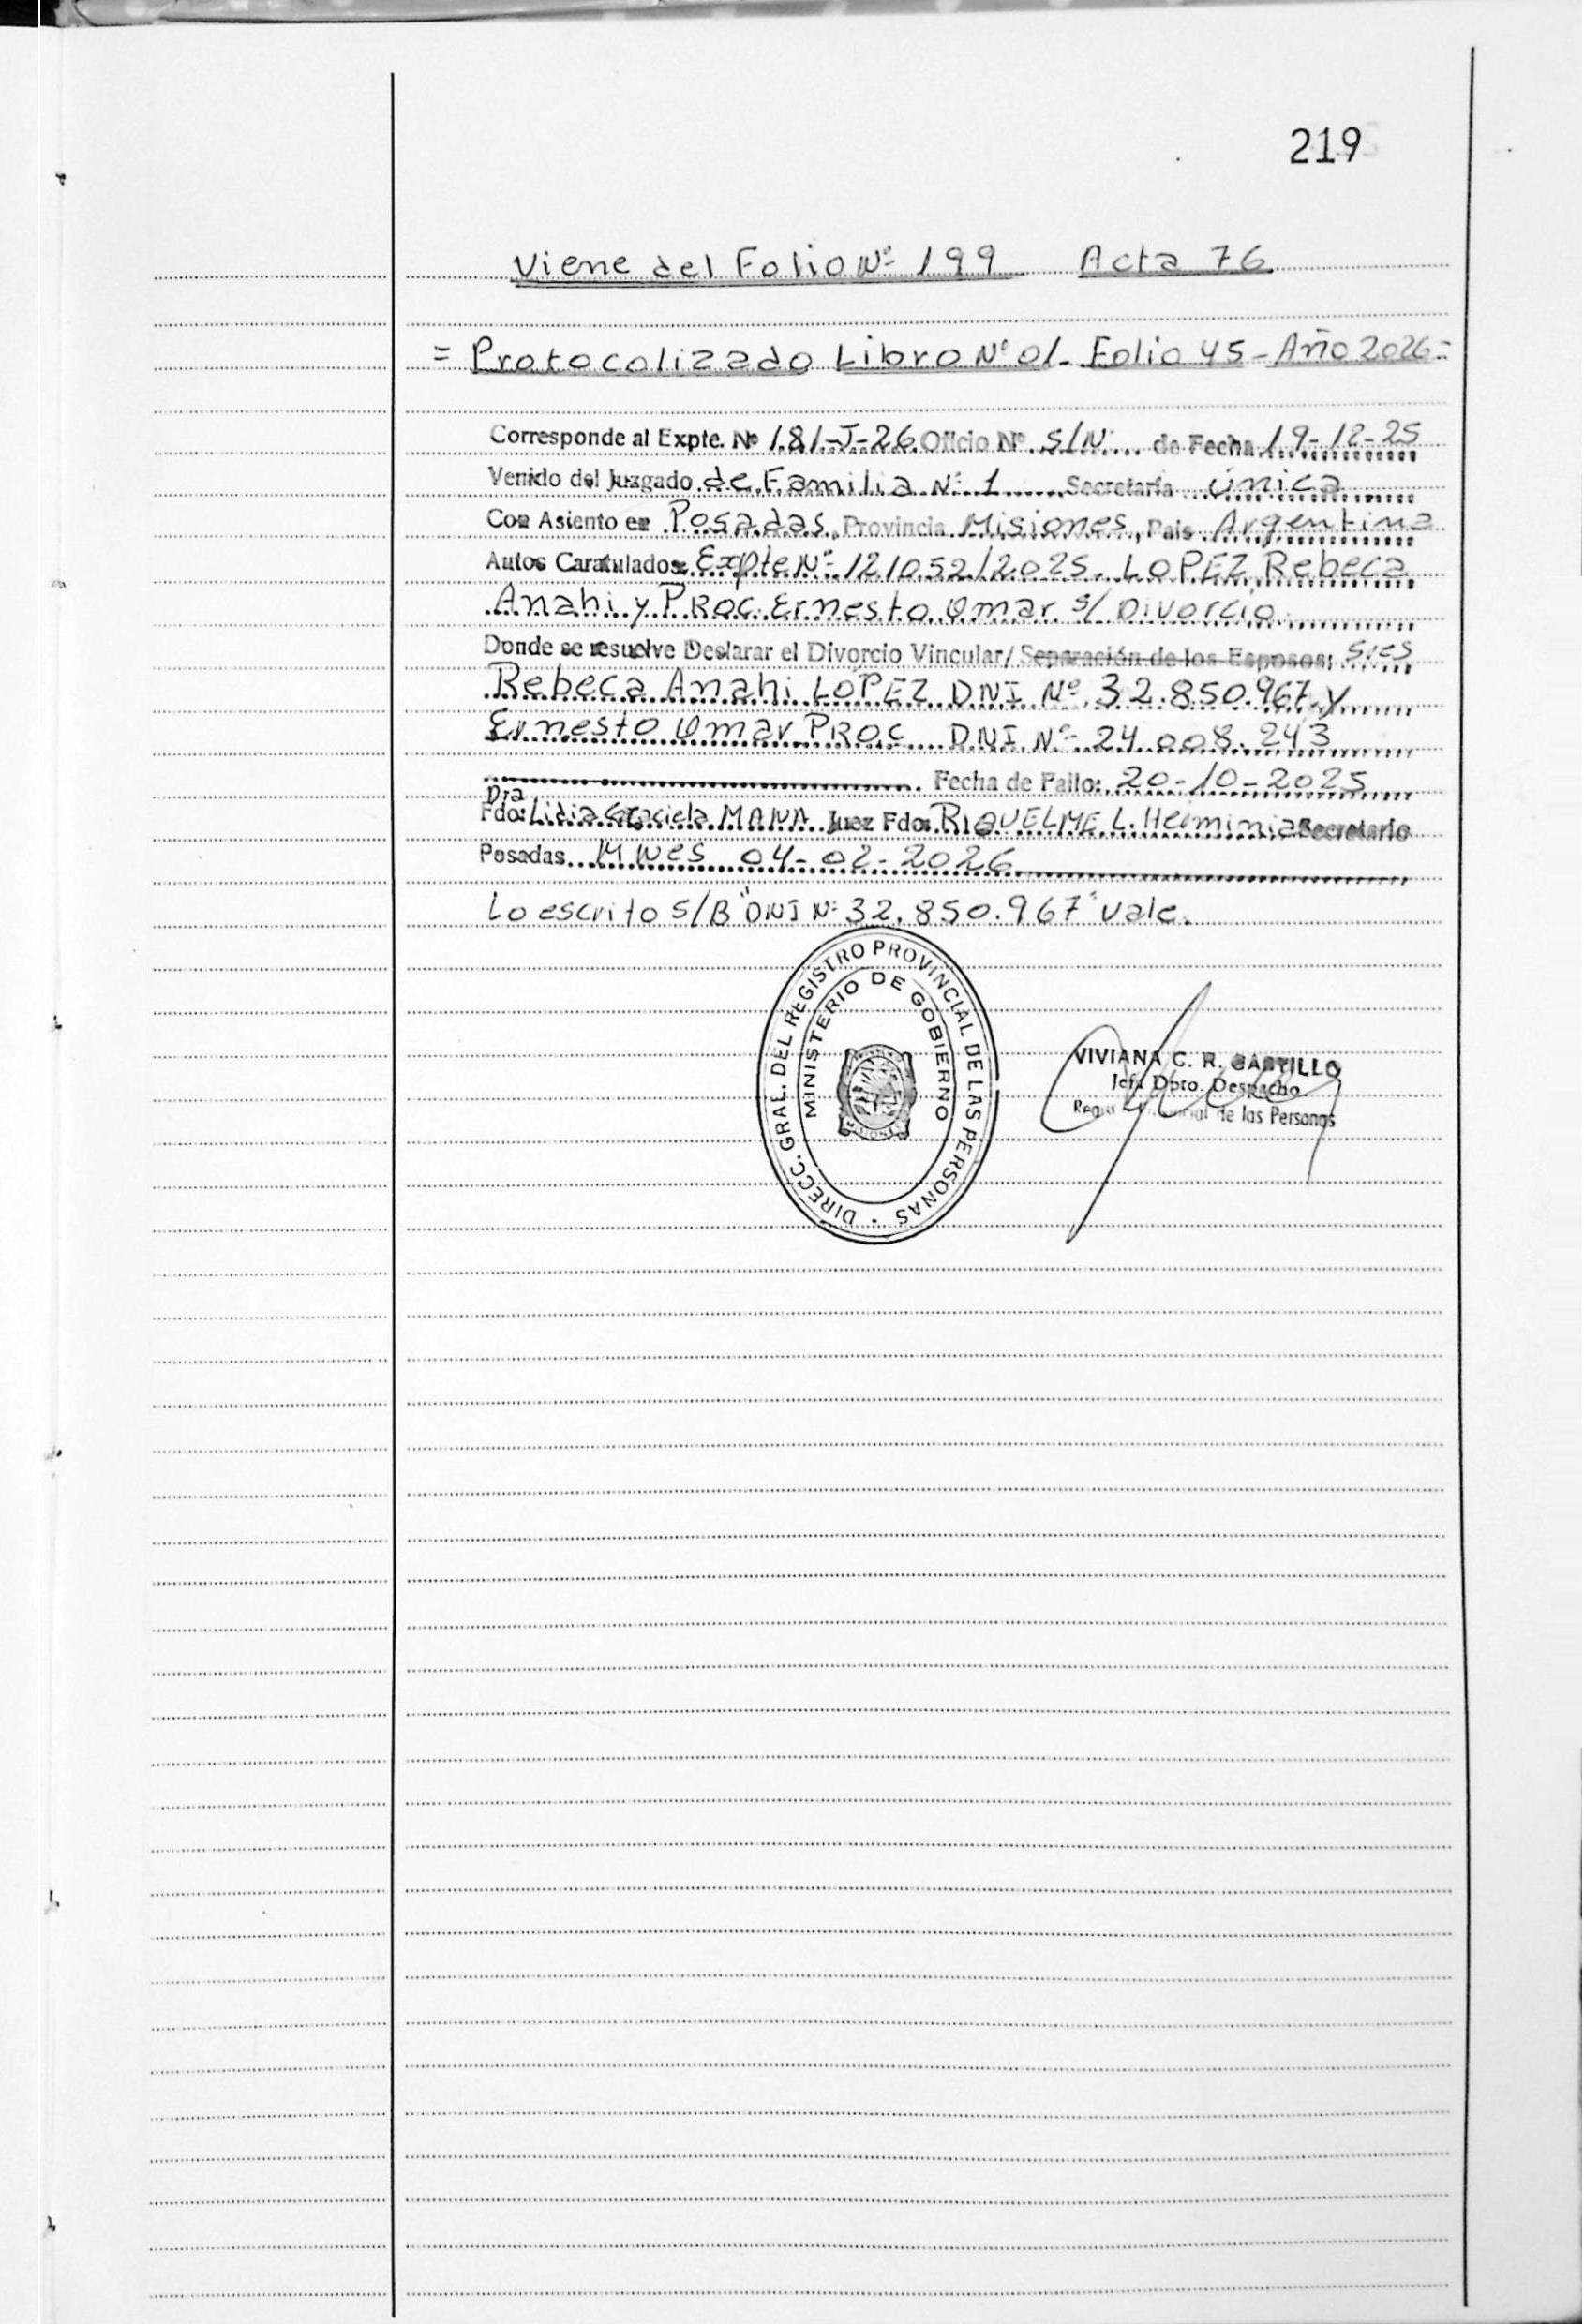 219
Viene del Folio Nº 199 Acta 76
= Protocolizado Libro Nº 01- Folio 45 - Año 2026=
Corresponde al Expte. Nº 181-J-26 Oficio Nº S/Nº de Fecha 19-12-25
Venido del Juzgado de Familia Nº 1 Secretaría Única
Con Asiento en Posadas, Provincia Misiones, País Argentina
Autos Caratulados: Expte Nº 121052/2025. LOPEZ, Rebeca
Anahi y PROC. Ernesto Omar s/ Divorcio
Donde se resuelve Declarar el Divorcio Vincular/ Separación de los Esposos: Sres
Rebeca Anahi LOPEZ DNI Nº 32.850.967 y
Ernesto Omar PROC DNI Nº 24.008.243
Fecha de Fallo: 20-10-2025
Dra
Fdo: Lidia Graciela MANA Juez Fdo: RIQUELME L. Herminia Secretario
Posadas Mnes 04-02-2026
Lo escrito S/B "DNI Nº 32.850.967" Vale.
DIRECC. GRAL. DEL REGISTRO PROVINCIAL DE LAS PERSONAS
MINISTERIO DE GOBIERNO
MISIONES
VIVIANA C. R. CASTILLO
Jefa Dpto. Despacho
de las Personas